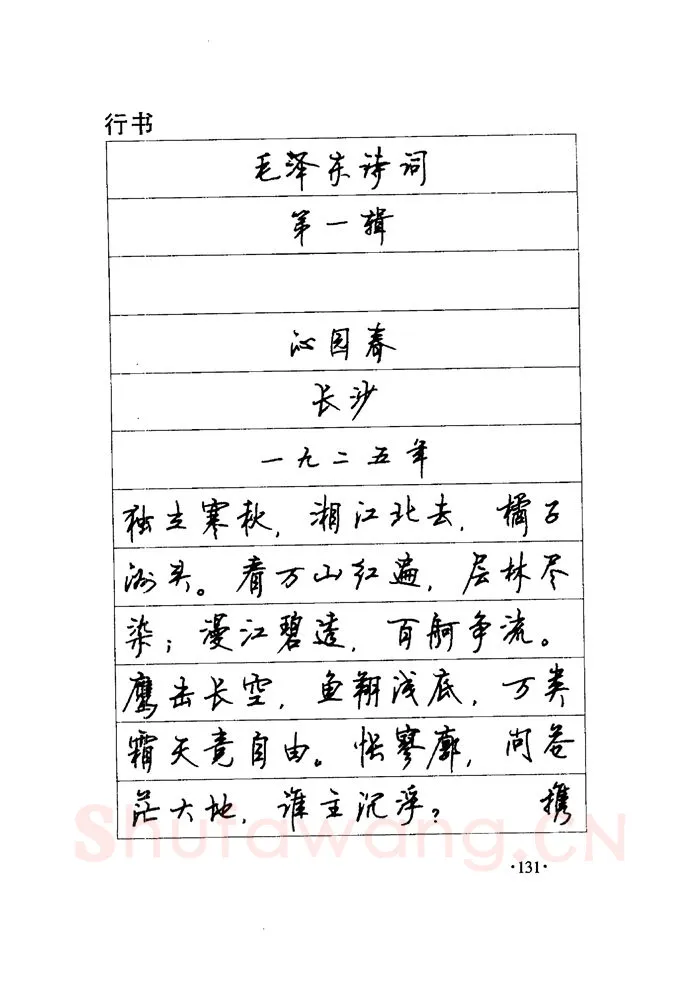 行书
毛泽东诗词
第一辑
沁园春
长沙
一九二五年
独立寒秋，湘江北去，橘子
洲头。看万山红遍，层林尽
染；漫江碧透，百舸争流。
鹰击长空，鱼翔浅底，万类
霜天竞自由。怅寥廓，问苍
茫大地，谁主沉浮？ 携
Shufawang.CN
·131·